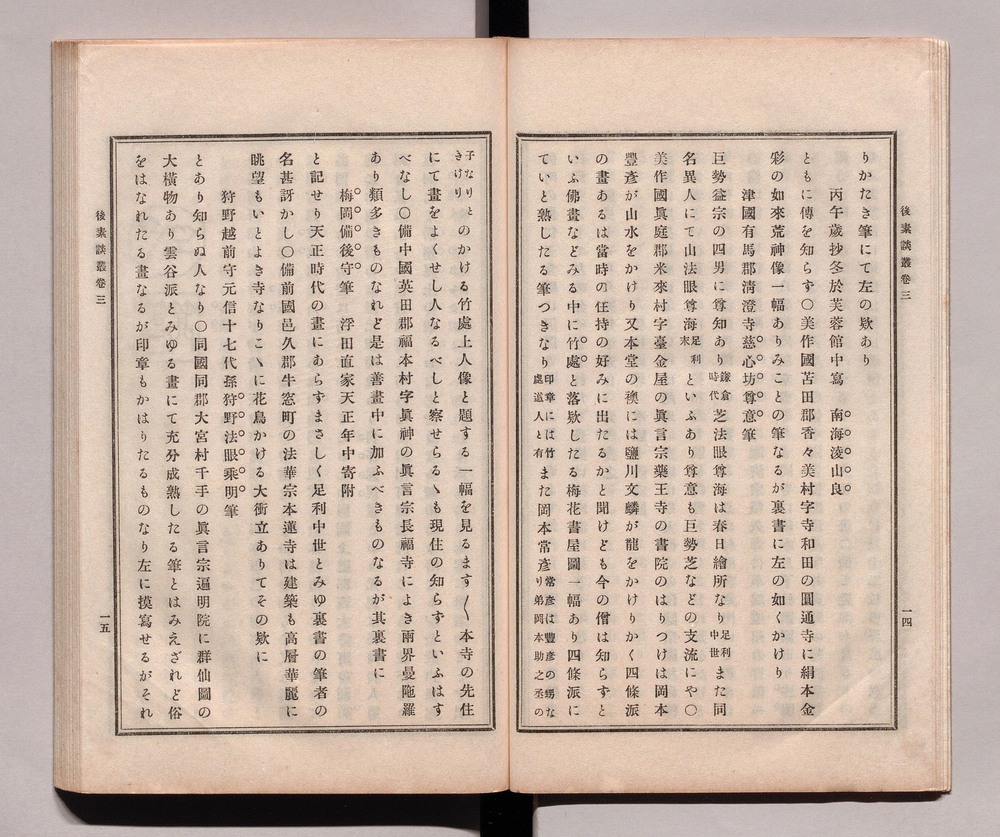 後素談叢卷三
一四
りかたき筆にて左の欵あり
丙午歲抄冬於芙蓉館中寫 南海淩山良
ともに傳を知らす〇美作國苫田郡香々美村字寺和田の圓通寺に絹本金
彩の如來荒神像一幅ありみことの筆なるが裏書に左の如くかけり
津國有馬郡淸澄寺慈心坊尊意筆
巨勢益宗の四男に尊知あり鎌倉時代芝法眼尊海は春日繪所なり足利中世また同
名異人にて山法眼尊海足利末といふあり尊意も巨勢芝などの支流にや〇
美作國眞庭郡米來村字臺金屋の眞言宗藥王寺の書院のはりつけは岡本
豐彥が山水をかけり又本堂の襖には鹽川文麟が龍をかけりかく四條派
の畫あるは當時の住持の好みに出たるかと聞けども今の僧は知らずと
いふ佛畫などみる中に竹處と落欵したる梅花書屋圖一幅あり四條派に
ていと熟したる筆つきなり印章には竹處道人と有また岡本常彥常彥は豐彥の甥なり弟岡本助之丞の
子なりときけりとのかける竹處上人像と題する一幅を見るます〱本寺の先住
にて畫をよくせし人なるべしと察せらるゝも現住の知らすといふはす
べなし〇備中國英田郡福本村字眞神の眞言宗長福寺によき兩界曼陁羅
あり類多きものなれど是は善畫中に加ふべきものなるが其裏書に
梅岡備後守筆 浮田直家天正年中寄附
と記せり天正時代の畫にあらすまさしく足利中世とみゆ裏書の筆者の
名甚訝かし〇備前國邑久郡牛窓町の法華宗本蓮寺は建築も高層華麗に
眺望もいとよき寺なりこゝに花鳥かける大衝立ありてその欵に
狩野越前守元信十七代孫狩野法眼乘明筆
とあり知らぬ人なり〇同國同郡大宮村千手の眞言宗遍明院に群仙圖の
大橫物あり雲谷派とみゆる畫にて充分成熟したる筆とはみえざれど俗
をはなれたる畫なるが印章もかはりたるものなり左に摸寫せるがそれ
後素談叢卷三
一五